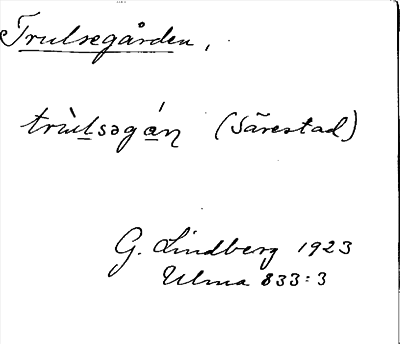 Trulsegården,
trùlsəgán (Särestad)
G. Lindberg 1923
Ulma 833:3